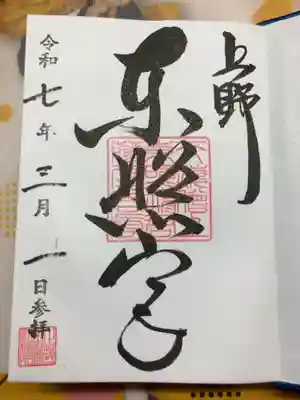 上野
東照宮
令和七年三月一日参拝